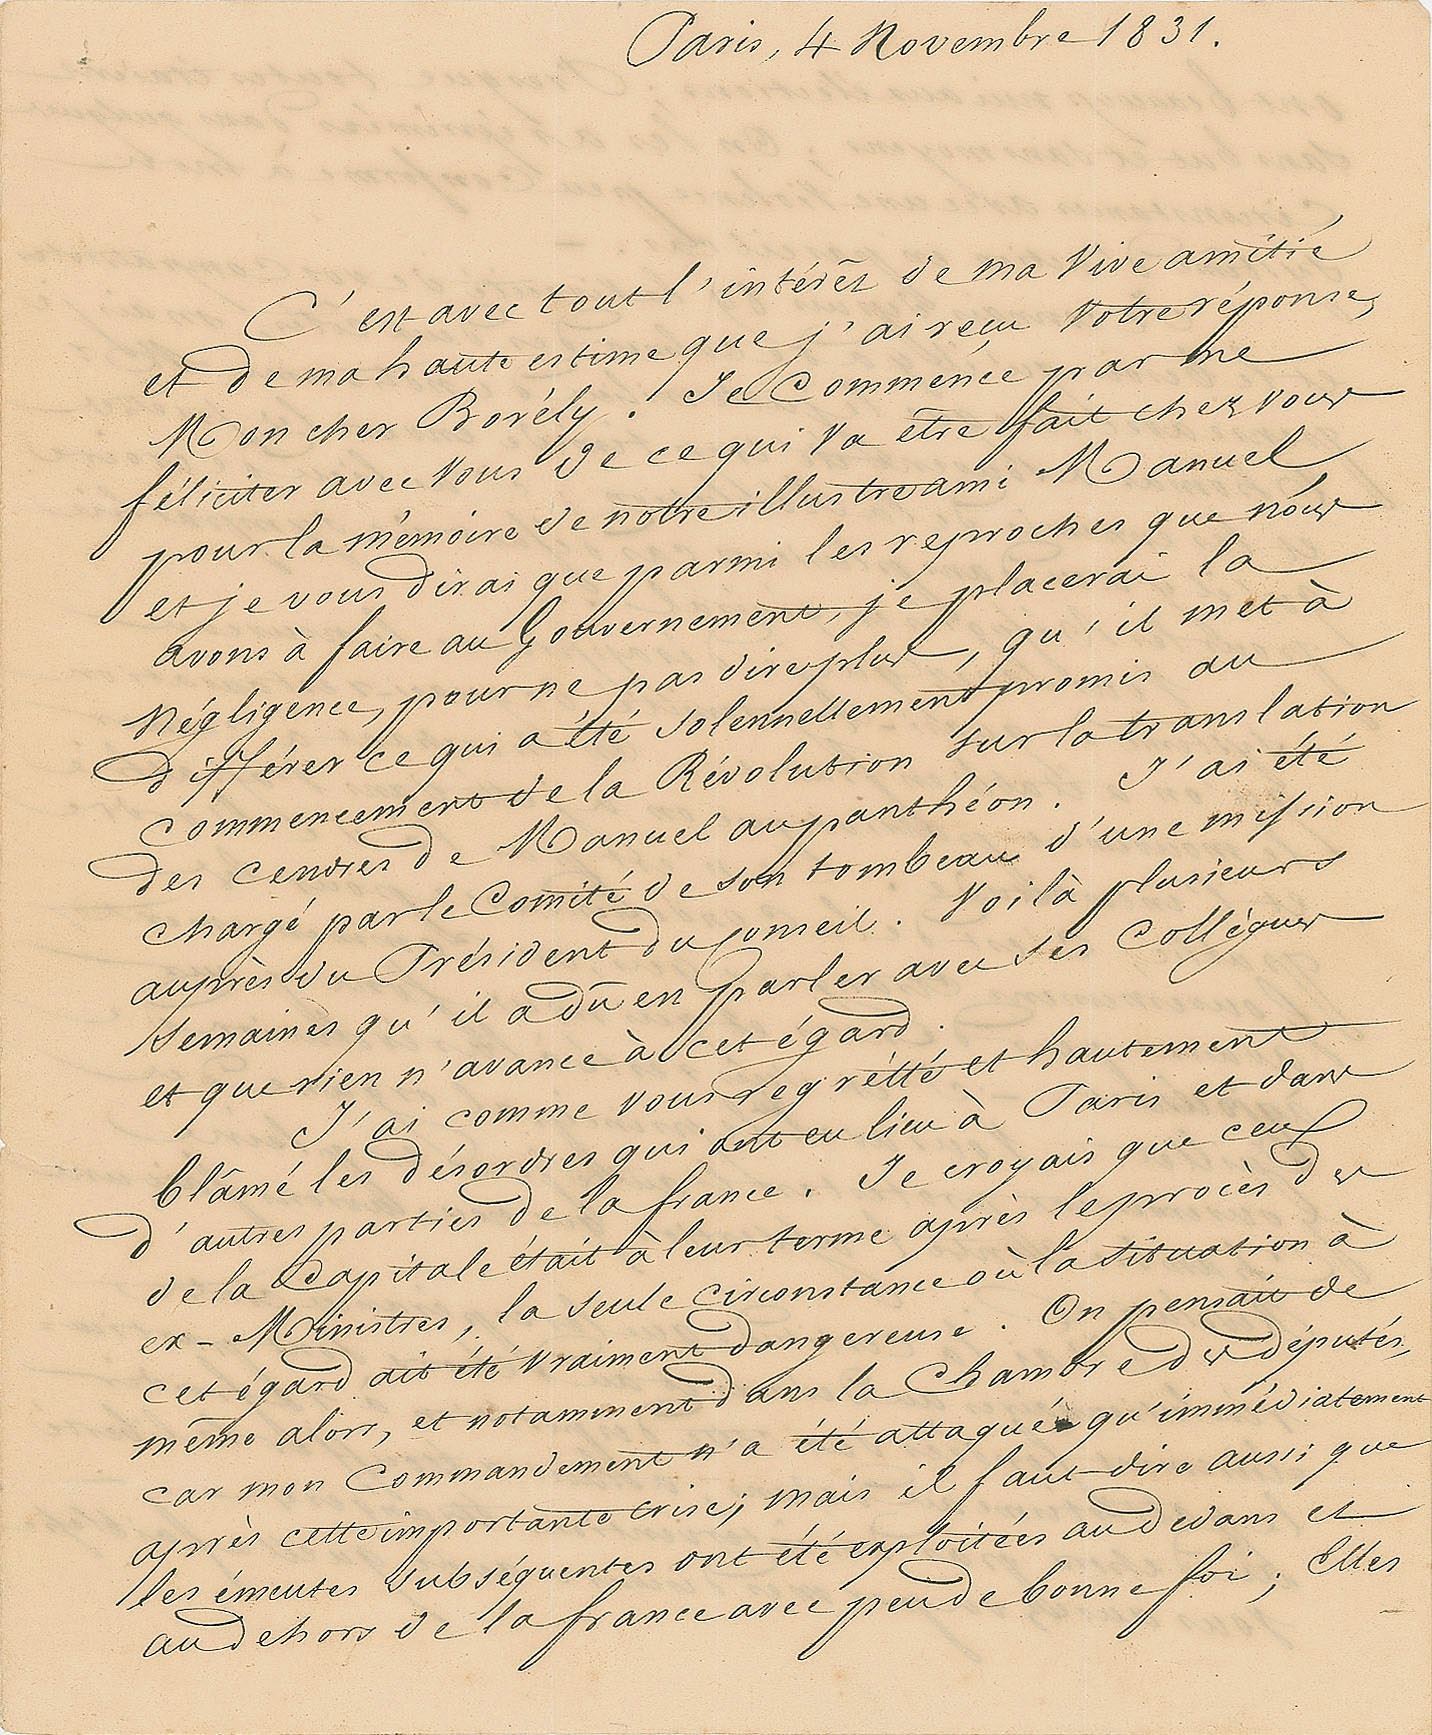 Paris, 4 Novembre 1831.
C'est avec tout l'intérêt de ma vive amitié
et de ma haute estime que j'ai reçu votre réponse,
Mon cher Borély. Je commence par me
féliciter avec vous de ce qui va être fait chez vous
pour la mémoire de notre illustre ami Manuel
et je vous dirai que parmi les reproches que nous
avons à faire au Gouvernement, je placerai la
Négligence, pour ne pas dire plus, qu'il met à
différer ce qui a été solennellement promis au
commencement de la Révolution sur la translation
des cendres de Manuel au panthéon. J'ai été
chargé par le Comité de son tombeau d'une mission
auprès du Président du Conseil. Voilà plusieurs
semaines qu'il a dû en parler avec ses Collègues
et que rien n'avance à cet égard.
J'ai comme vous regrétté et hautement
blâmé les désordres qui ont eu lieu à Paris et dans
d'autres parties de la france. Je croyais que ceux
de la Capitale était à leur terme après le procès des
ex-Ministres, la seule circonstance où la situation à
cet égard ait été vraiment dangereuse. On pensait de
même alors, et notamment dans la Chambre des députés,
car mon Commandement n'a été attaqué qu'immédiatement
après cette importante crise; mais il faut dire aussi que
les émeutes subséquentes ont été exploitées au dedans et
au dehors de la france avec peu de bonne foi; Elles